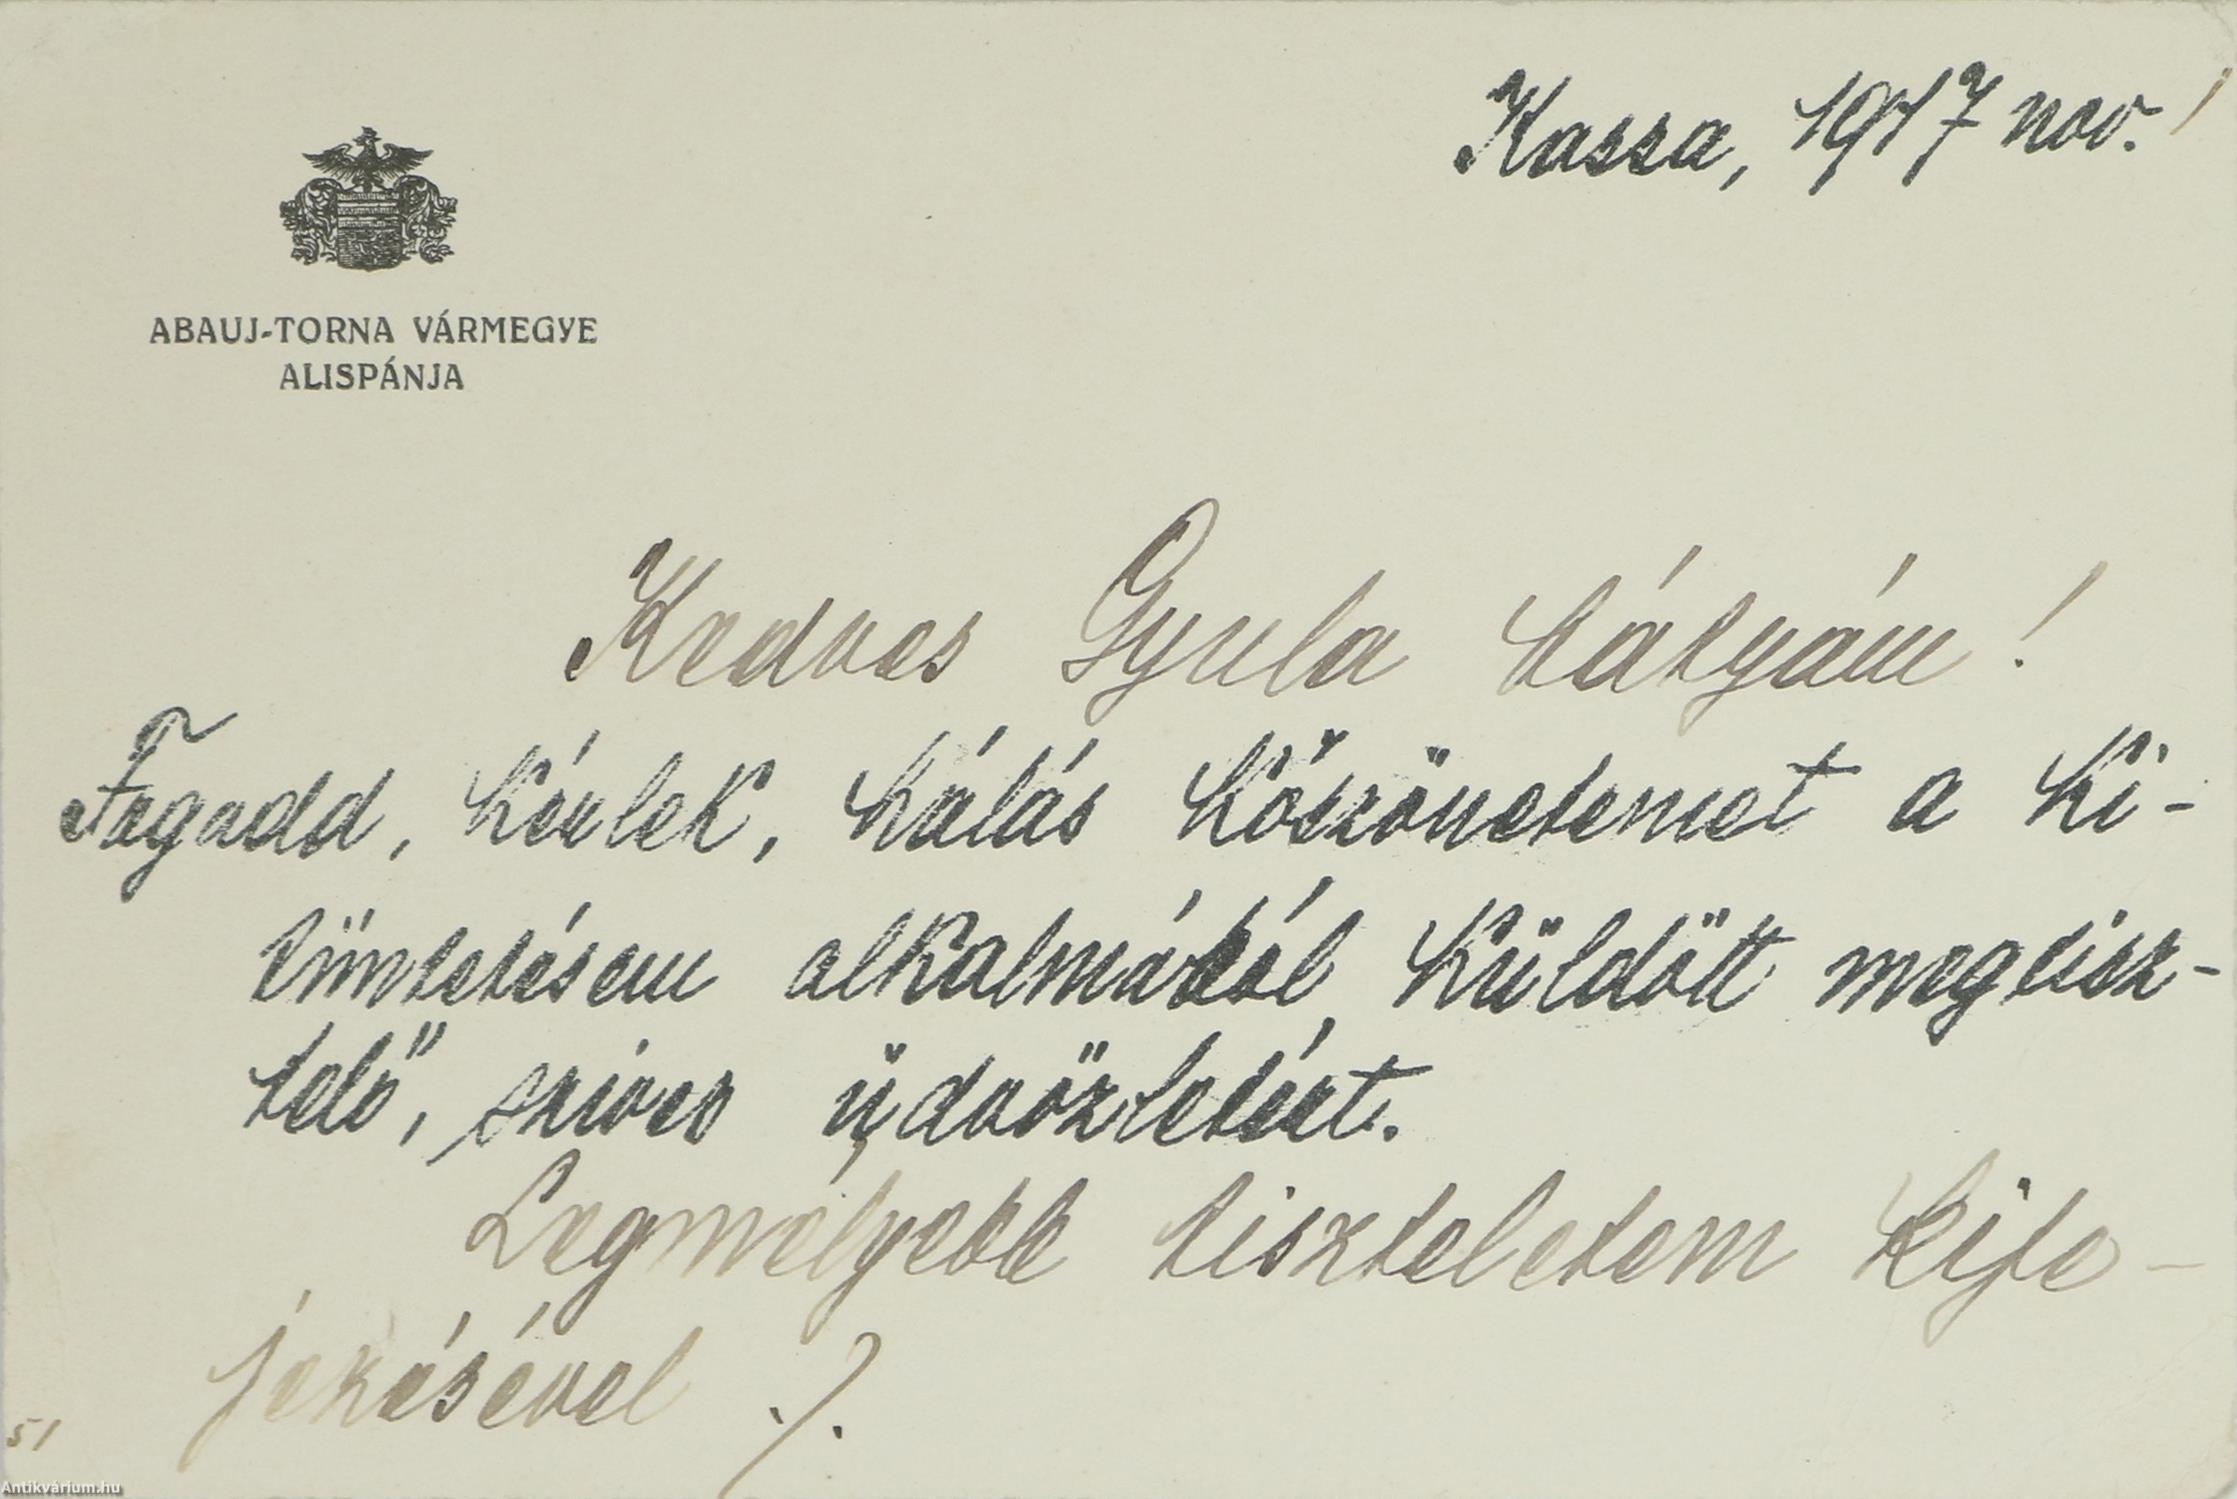 Kassa, 1917 nov. 1
ABAUJ-TORNA VÁRMEGYE
ALISPÁNJA
Kedves Gyula bátyám!
Fogadd, kérlek, hálás köszönetemet a ki-
tüntetésem alkalmából küldött megtisz-
telő, szíves üdvözletért.
Legmélyebb tiszteletem kife-
jezésével ./.
51
Antikvárium.hu